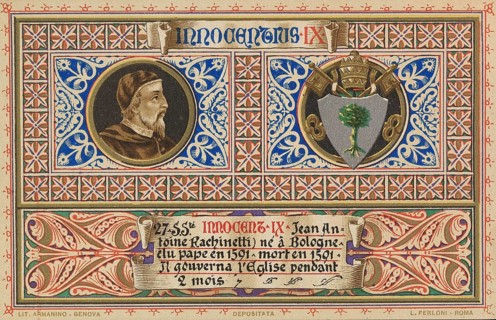 INNOCENTIUS IX
27-SSté INNOCENT·IX·Jean An-
toine Fachinetti) né à Bologne
élu pape en 1591·mort en 1591·
Il gouverna l'Eglise pendant
2 mois
LIT. ARMANINO - GENOVA DEPOSITATA L. FERLONI - ROMA